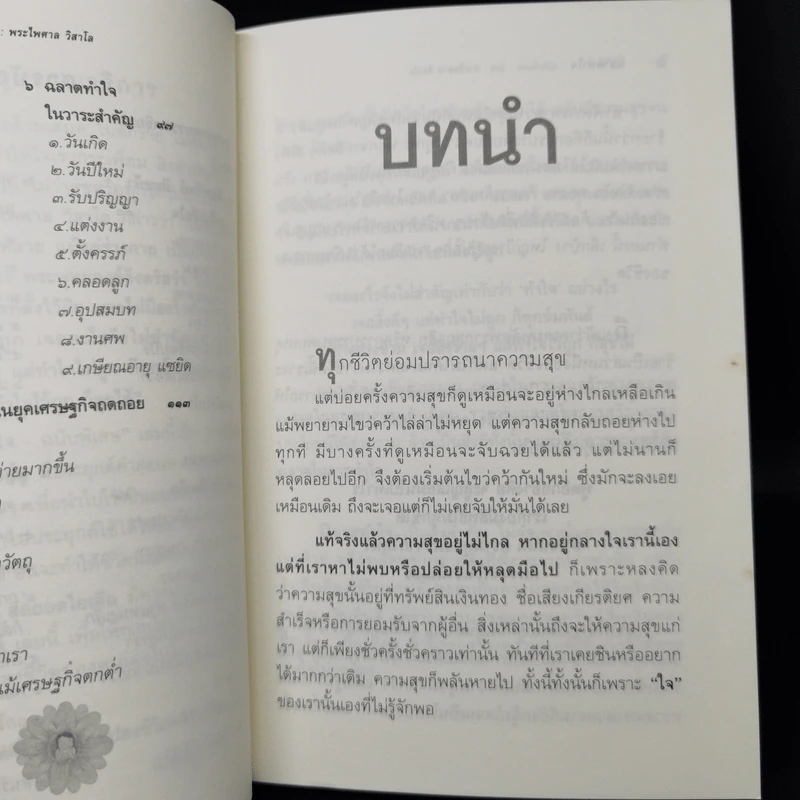 : พระไพศาล วิสาโล
๖ ฉลาดทำใจ
ในวาระสำคัญ ๙๗
๑.วันเกิด
๒.วันปีใหม่
๓.รับปริญญา
๔.แต่งงาน
๕.ตั้งครรภ์
๖.คลอดลูก
๗.อุปสมบท
๘.งานศพ
๙.เกษียณอายุ แซยิด
นยุคเศรษฐกิจถดถอย ๑๑๓
่ายมากขึ้น
วัตถุ
เรา
ม้เศรษฐกิจตกต่ำ
บทนำ
ทุกชีวิตย่อมปรารถนาความสุข
แต่บ่อยครั้งความสุขก็ดูเหมือนจะอยู่ห่างไกลเหลือเกิน
แม้พยายามไขว่คว้าไล่ล่าไม่หยุด แต่ความสุขกลับถอยห่างไป
ทุกที มีบางครั้งที่ดูเหมือนจะจับฉวยได้แล้ว แต่ไม่นานก็
หลุดลอยไปอีก จึงต้องเริ่มต้นไขว่คว้ากันใหม่ ซึ่งมักจะลงเอย
เหมือนเดิม ถึงจะเจอแต่ก็ไม่เคยจับให้มั่นได้เลย
แท้จริงแล้วความสุขอยู่ไม่ไกล หากอยู่กลางใจเรานี้เอง
แต่ที่เราหาไม่พบหรือปล่อยให้หลุดมือไป ก็เพราะหลงคิด
ว่าความสุขนั้นอยู่ที่ทรัพย์สินเงินทอง ชื่อเสียงเกียรติยศ ความ
สำเร็จหรือการยอมรับจากผู้อื่น สิ่งเหล่านั้นถึงจะให้ความสุขแก่
เรา แต่ก็เพียงชั่วครั้งชั่วคราวเท่านั้น ทันทีที่เราเคยชินหรืออยาก
ได้มากกว่าเดิม ความสุขก็พลันหายไป ทั้งนี้ทั้งนั้นก็เพราะ “ใจ”
ของเรานั้นเองที่ไม่รู้จักพอ